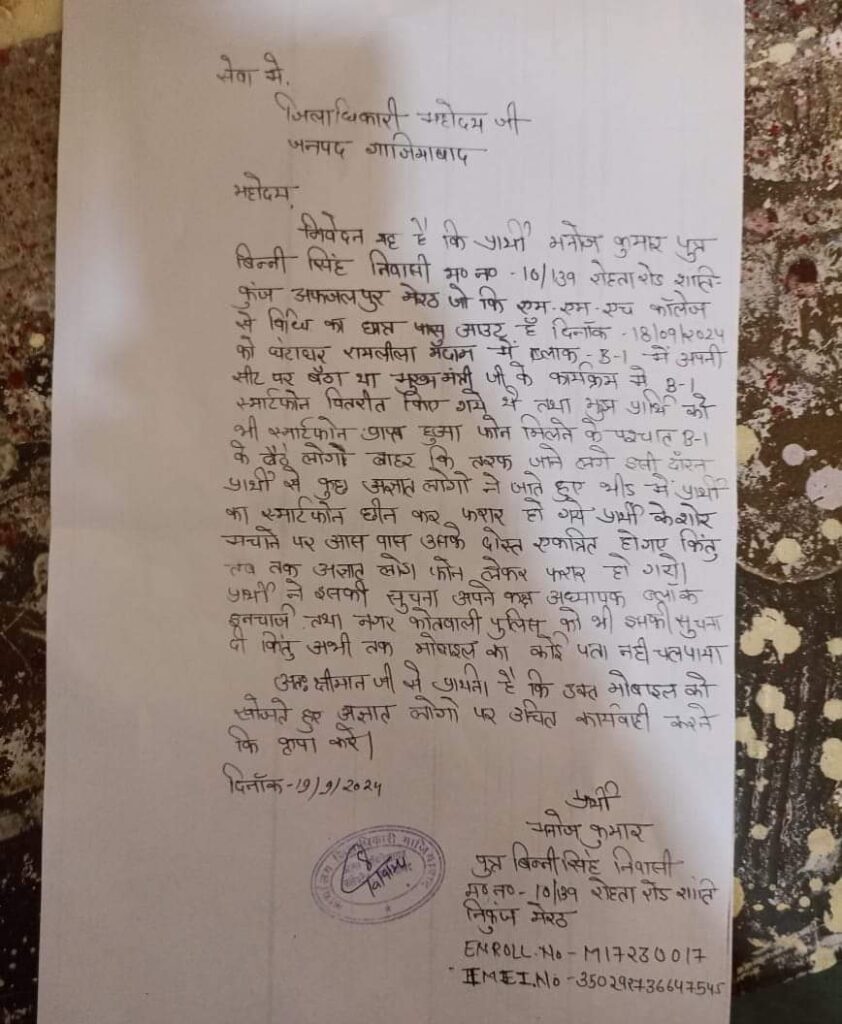 सेवा में,
जिलाधिकारी महोदय जी
जनपद गाजियाबाद
महोदय,
निवेदन यह है कि प्रार्थी मनोज कुमार पुत्र
बिन्नी सिंह निवासी म० न० - 10/139 रोहता रोड शांति-
कुंज अफजलपुर मेरठ जो कि एम.एम.एच कॉलेज
से विधि का छात्र पास आउट है दिनाँक - 18/09/2024
को घंटाघर रामलीला मैदान में ब्लाक - B-1 में अपनी
सीट पर बैठा था मुख्य मंत्री जी के कार्यक्रम में B-1
स्मार्टफोन वितरीत किए गये थे तथा मुझ प्रार्थि को
भी स्मार्टफोन प्राप्त हुआ फोन मिलने के पश्चात B-1
के बैठे लोगो बाहर कि तरफ जाने लगे इसी दौरन
प्रार्थी से कुछ अज्ञात लोगो ने जाते हुए भीड में प्रार्थी
का स्मार्टफोन छीन कर फरार हो गये प्रार्थी के शोर
मचाने पर आस पास उसके दोस्त एकत्रित होगए किंतु
तब तक अज्ञात लोग फोन लेकर फरार हो गये।
प्रार्थी ने इसकी सुचना अपने कक्ष अध्यापक ब्लॉक
इनचार्ज तथा नगर कोतवाली पुलिस को भी इसकी सुचना
दी किंतु अभी तक मोबाइल का कोई पता नही चलपाया
अतः श्रीमान जी से प्रार्थना है कि उक्त मोबाइल को
खोजते हुए अज्ञात लोगो पर उचित कार्यवाही करने
कि कृपा करें।
दिनाँक - 19/9/2024
प्रार्थी
मनोज कुमार
पुत्र बिन्नी सिंह निवासी
म० न० - 10/139 रोहता रोड शांति
निकुंज मेरठ
ENROLL.No - M17230017
IMEI.No - 350298736647545
कार्यालय जिलाधिकारी गाजियाबाद